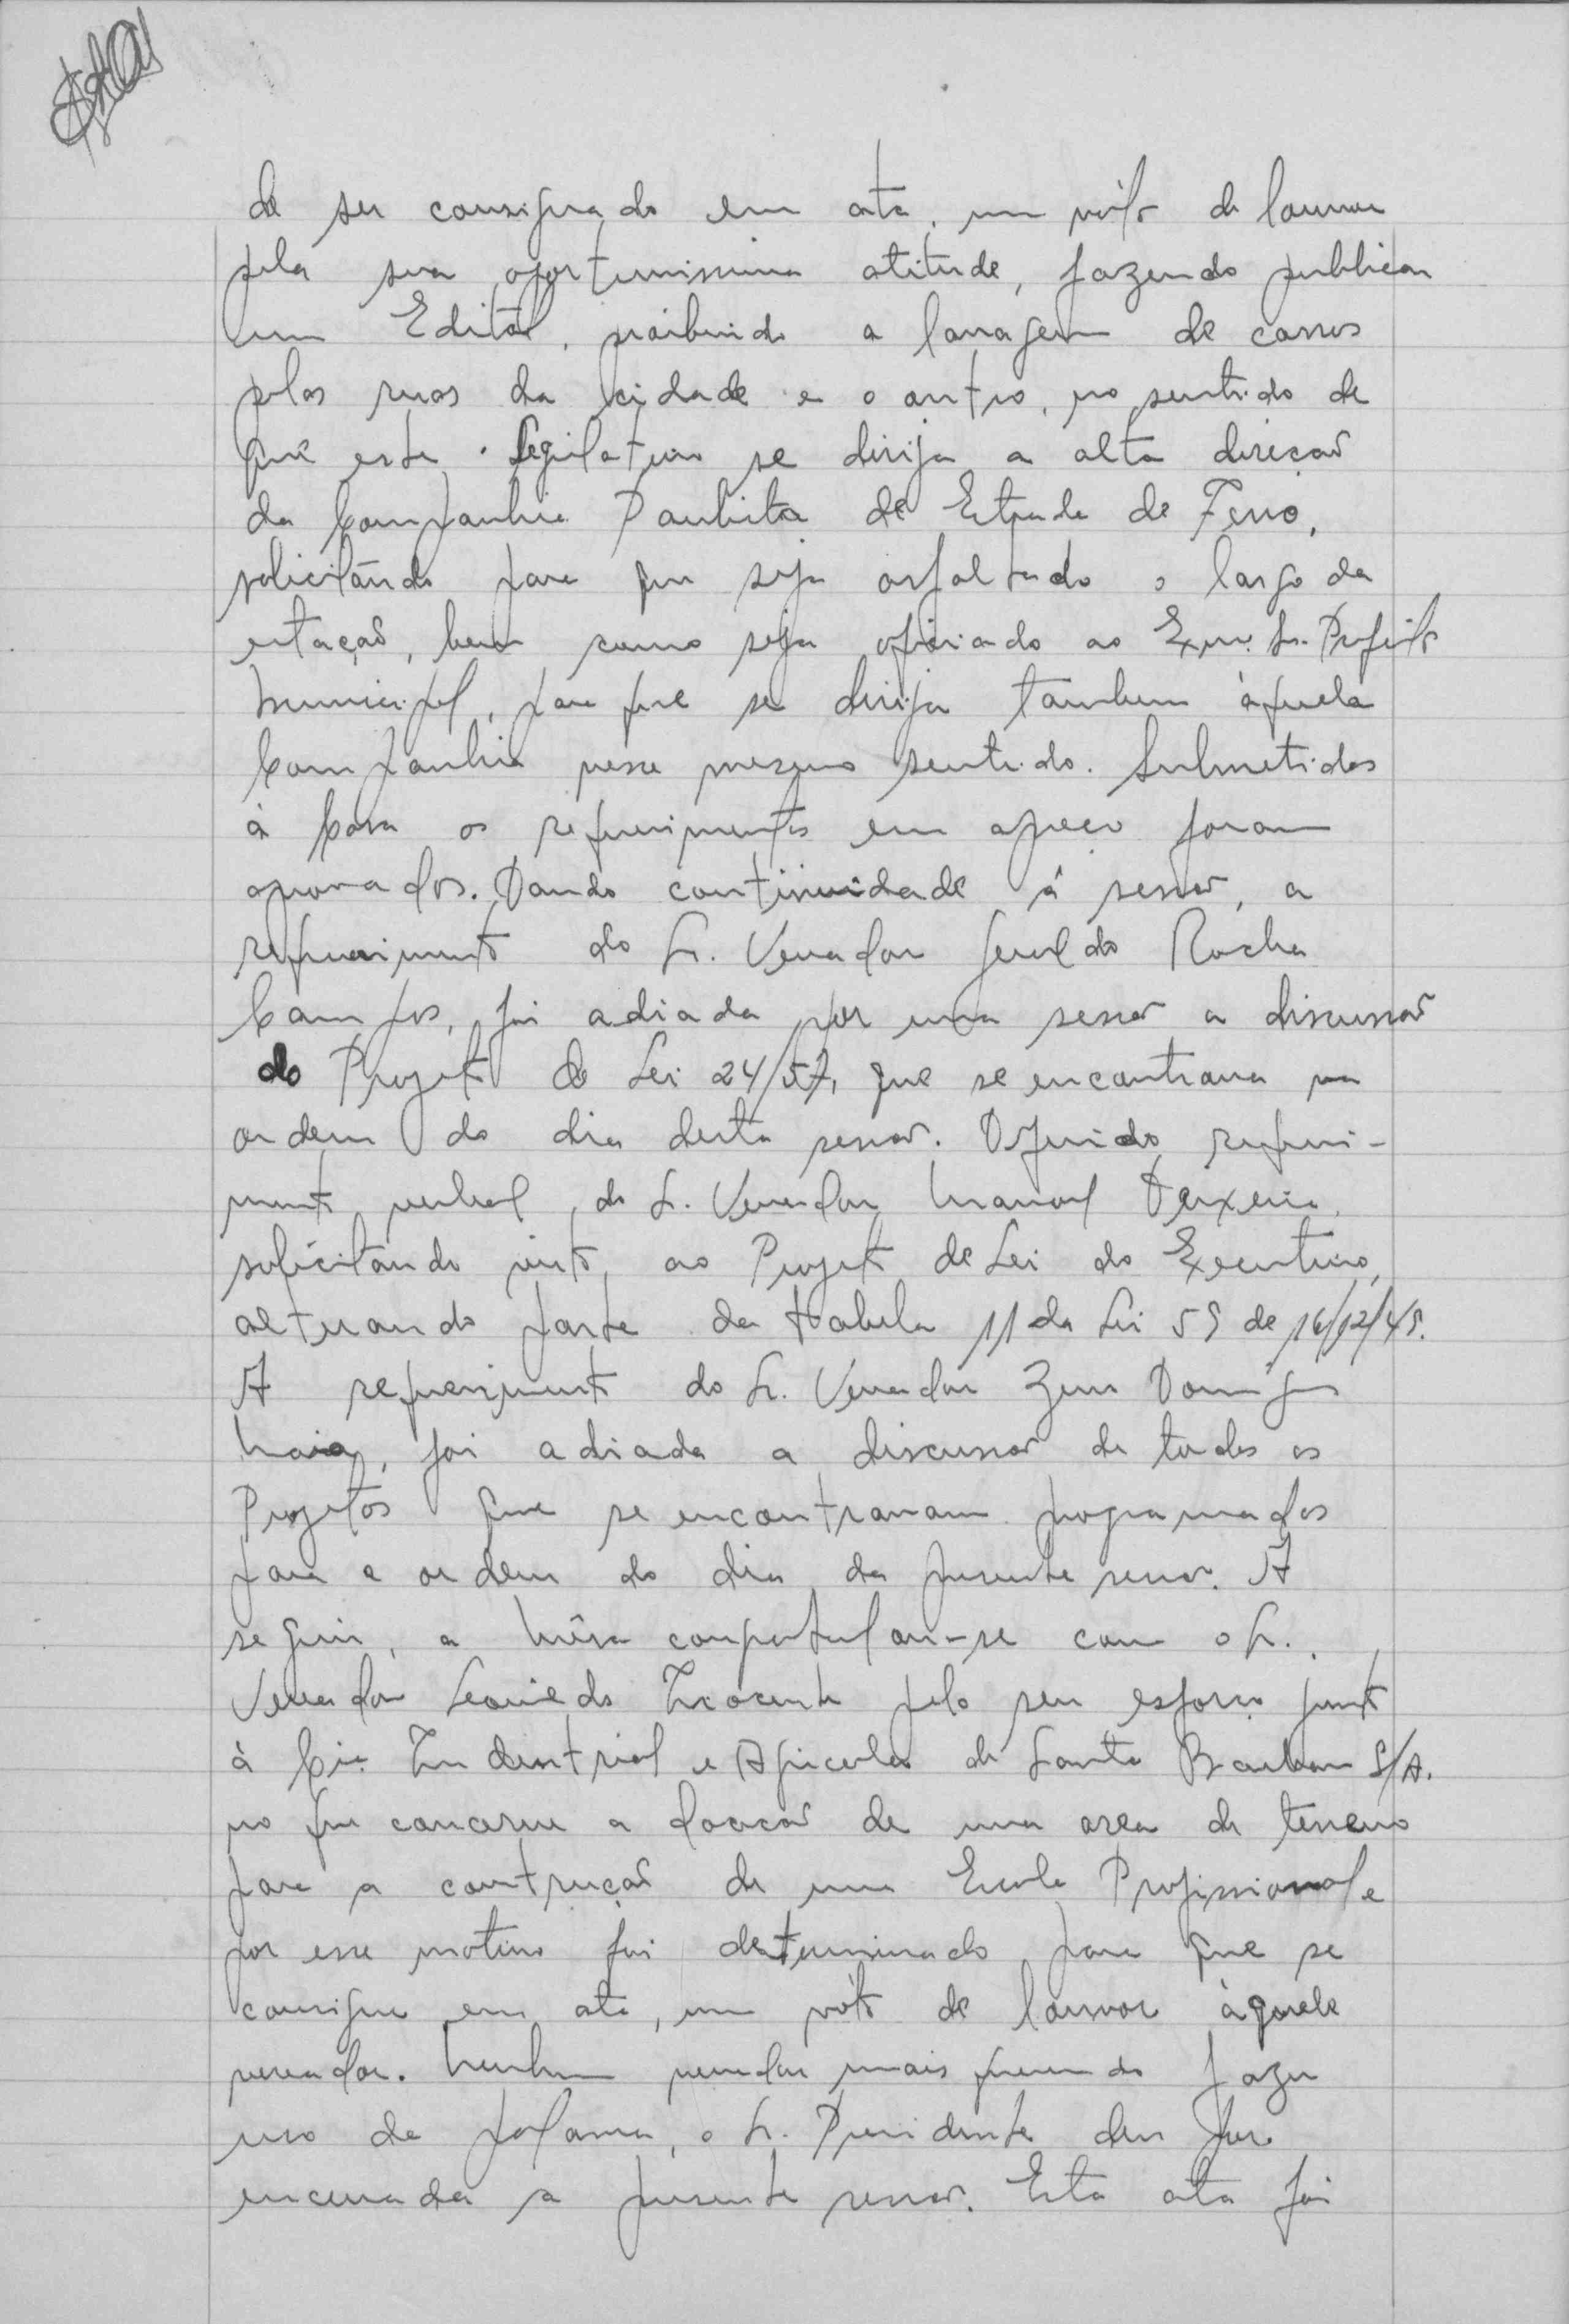 de ser consignado em ata, um vóto de louvor
pela sua oportunissima atitude, fazendo publicar
um Edital, proibindo a lavagem de carros
pelas ruas da cidade e o outro, no sentido de
que este Legislativo se dirija a alta direção
da Companhia Paulista de Estrada de Ferro,
solicitando para que seja asfaltado o largo da
estação, bem como seja oficiado ao Exmo. Sr. Prefeito
Municipal, para que se dirija tambem àquela
Companhia nesse mesmo sentido. Submetidos
à Casa os requerimentos em apreço foram
aprovados. Dando continuidade á sessão, a
requerimento do Sr. Vereador Geraldo Rocha
Campos, foi adiada por uma sessão a discussão
do Projeto de Lei 24/57, que se encontrava na
ordem do dia desta sessão. Deferido requeri-
mento verbal do Sr. Vereador Manoel Teixeira,
solicitando vista ao Projeto de Lei do Executivo,
alterando parte da tabela 11 da Lei 59 de 16/12/49.
A requerimento do Sr. Vereador Zeno Domingues
Maia, foi adiada a discussão de todos os
Projetos que se encontravam programados
para a ordem do dia da presente sessão. A
seguir, a Mêsa congratulou-se com o Sr.
Vereador Leonildo pelo seu esforço junto
à Cia. Industrial e Agricola de Santa Barbara S/A.
no que concerne a doacão de uma area de terreno
para a contrução de uma Escola Profissional e
por esse motivo foi determinado para que se
consigne em ata, um vóto de louvor àquele
vereador. Nenhum vereador mais querendo fazer
uso da palavra, o Sr. Presidente deu por
encerrada a presente sessão. Esta ata foi